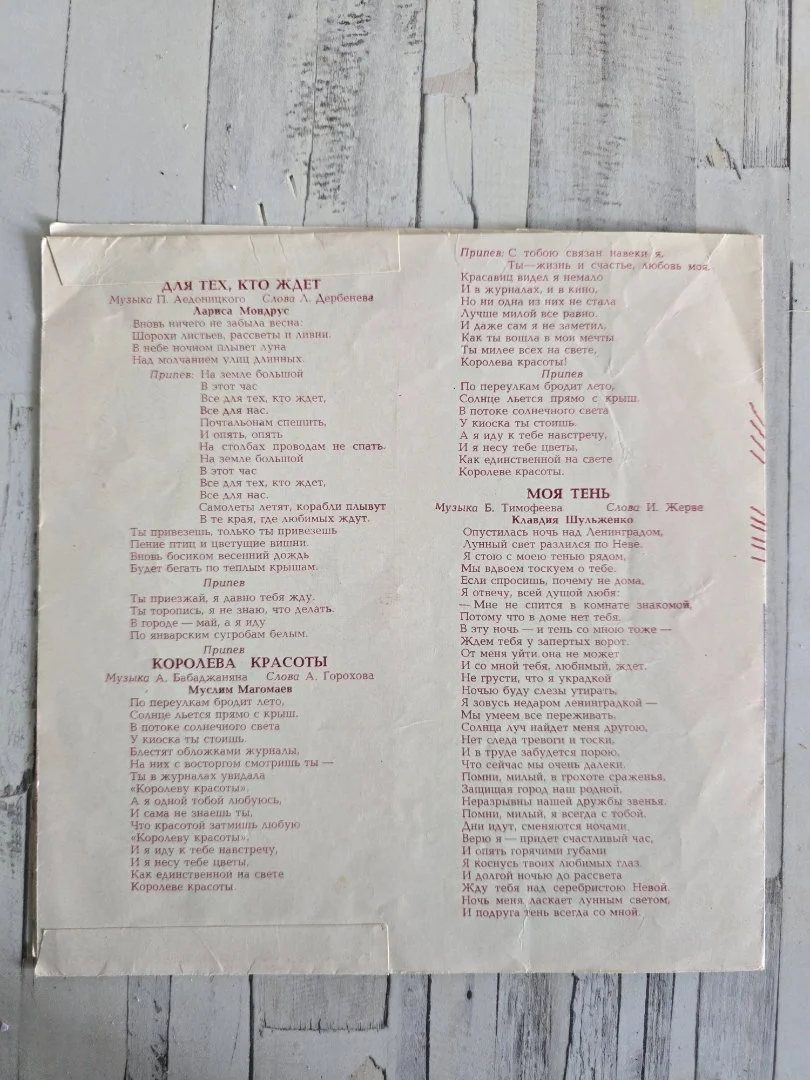 ДЛЯ ТЕХ, КТО ЖДЕТ
Музыка П. Аедоницкого Слова Л. Дербенева
Лариса Мондрус
Вновь ничего не забыла весна:
Шорохи листьев, рассветы и ливни.
В небе ночном плывет луна
Над молчанием улиц длинных.
Припев: На земле большой
В этот час
Все для тех, кто ждет,
Все для нас.
Почтальонам спешить,
И опять, опять
На столбах проводам не спать.
На земле большой
В этот час
Все для тех, кто ждет,
Все для нас.
Самолеты летят, корабли плывут
В те края, где любимых ждут.
Ты привезешь, только ты привезешь
Пение птиц и цветущие вишни.
Вновь босиком весенний дождь
Будет бегать по теплым крышам.
Припев
Ты приезжай, я давно тебя жду.
Ты торопись, я не знаю, что делать.
В городе — май, а я иду
По январским сугробам белым.
Припев
КОРОЛЕВА КРАСОТЫ
Музыка А. Бабаджаняна Слова А. Горохова
Муслим Магомаев
По переулкам бродит лето,
Солнце льется прямо с крыш.
В потоке солнечного света
У киоска ты стоишь.
Блестят обложками журналы,
На них с восторгом смотришь ты —
Ты в журналах увидала
«Королеву красоты».
А я одной тобой любуюсь,
И сама не знаешь ты,
Что красотой затмишь любую
«Королеву красоты».
И я иду к тебе навстречу,
И я несу тебе цветы,
Как единственной на свете
Королеве красоты.
Припев: С тобою связан навеки я,
Ты—жизнь и счастье, любовь моя.
Красавиц видел я немало
И в журналах, и в кино,
Но ни одна из них не стала
Лучше милой все равно.
И даже сам я не заметил,
Как ты вошла в мои мечты.
Ты милее всех на свете,
Королева красоты!
Припев
По переулкам бродит лето,
Солнце льется прямо с крыш.
В потоке солнечного света
У киоска ты стоишь.
А я иду к тебе навстречу,
И я несу тебе цветы,
Как единственной на свете
Королеве красоты.
МОЯ ТЕНЬ
Музыка Б. Тимофеева Слова И. Жерве
Клавдия Шульженко
Опустилась ночь над Ленинградом,
Лунный свет разлился по Неве.
Я стою с моею тенью рядом,
Мы вдвоем тоскуем о тебе.
Если спросишь, почему не дома,
Я отвечу, всей душой любя:
— Мне не спится в комнате знакомой,
Потому что в доме нет тебя.
В эту ночь — и тень со мною тоже —
Ждем тебя у запертых ворот.
От меня уйти она не может
И со мной тебя, любимый, ждет.
Не грусти, что я украдкой
Ночью буду слезы утирать,
Я зовусь недаром ленинградкой —
Мы умеем все переживать.
Солнца луч найдет меня другою,
Нет следа тревоги и тоски,
И в труде забудется порою,
Что сейчас мы очень далеки.
Помни, милый, в грохоте сраженья,
Защищая город наш родной,
Неразрывны нашей дружбы звенья.
Помни, милый, я всегда с тобой.
Дни идут, сменяются ночами.
Верю я — придет счастливый час,
И опять горячими губами
Я коснусь твоих любимых глаз.
И долгой ночью до рассвета
Жду тебя над серебристою Невой.
Ночь меня ласкает лунным светом,
И подруга тень всегда со мной.